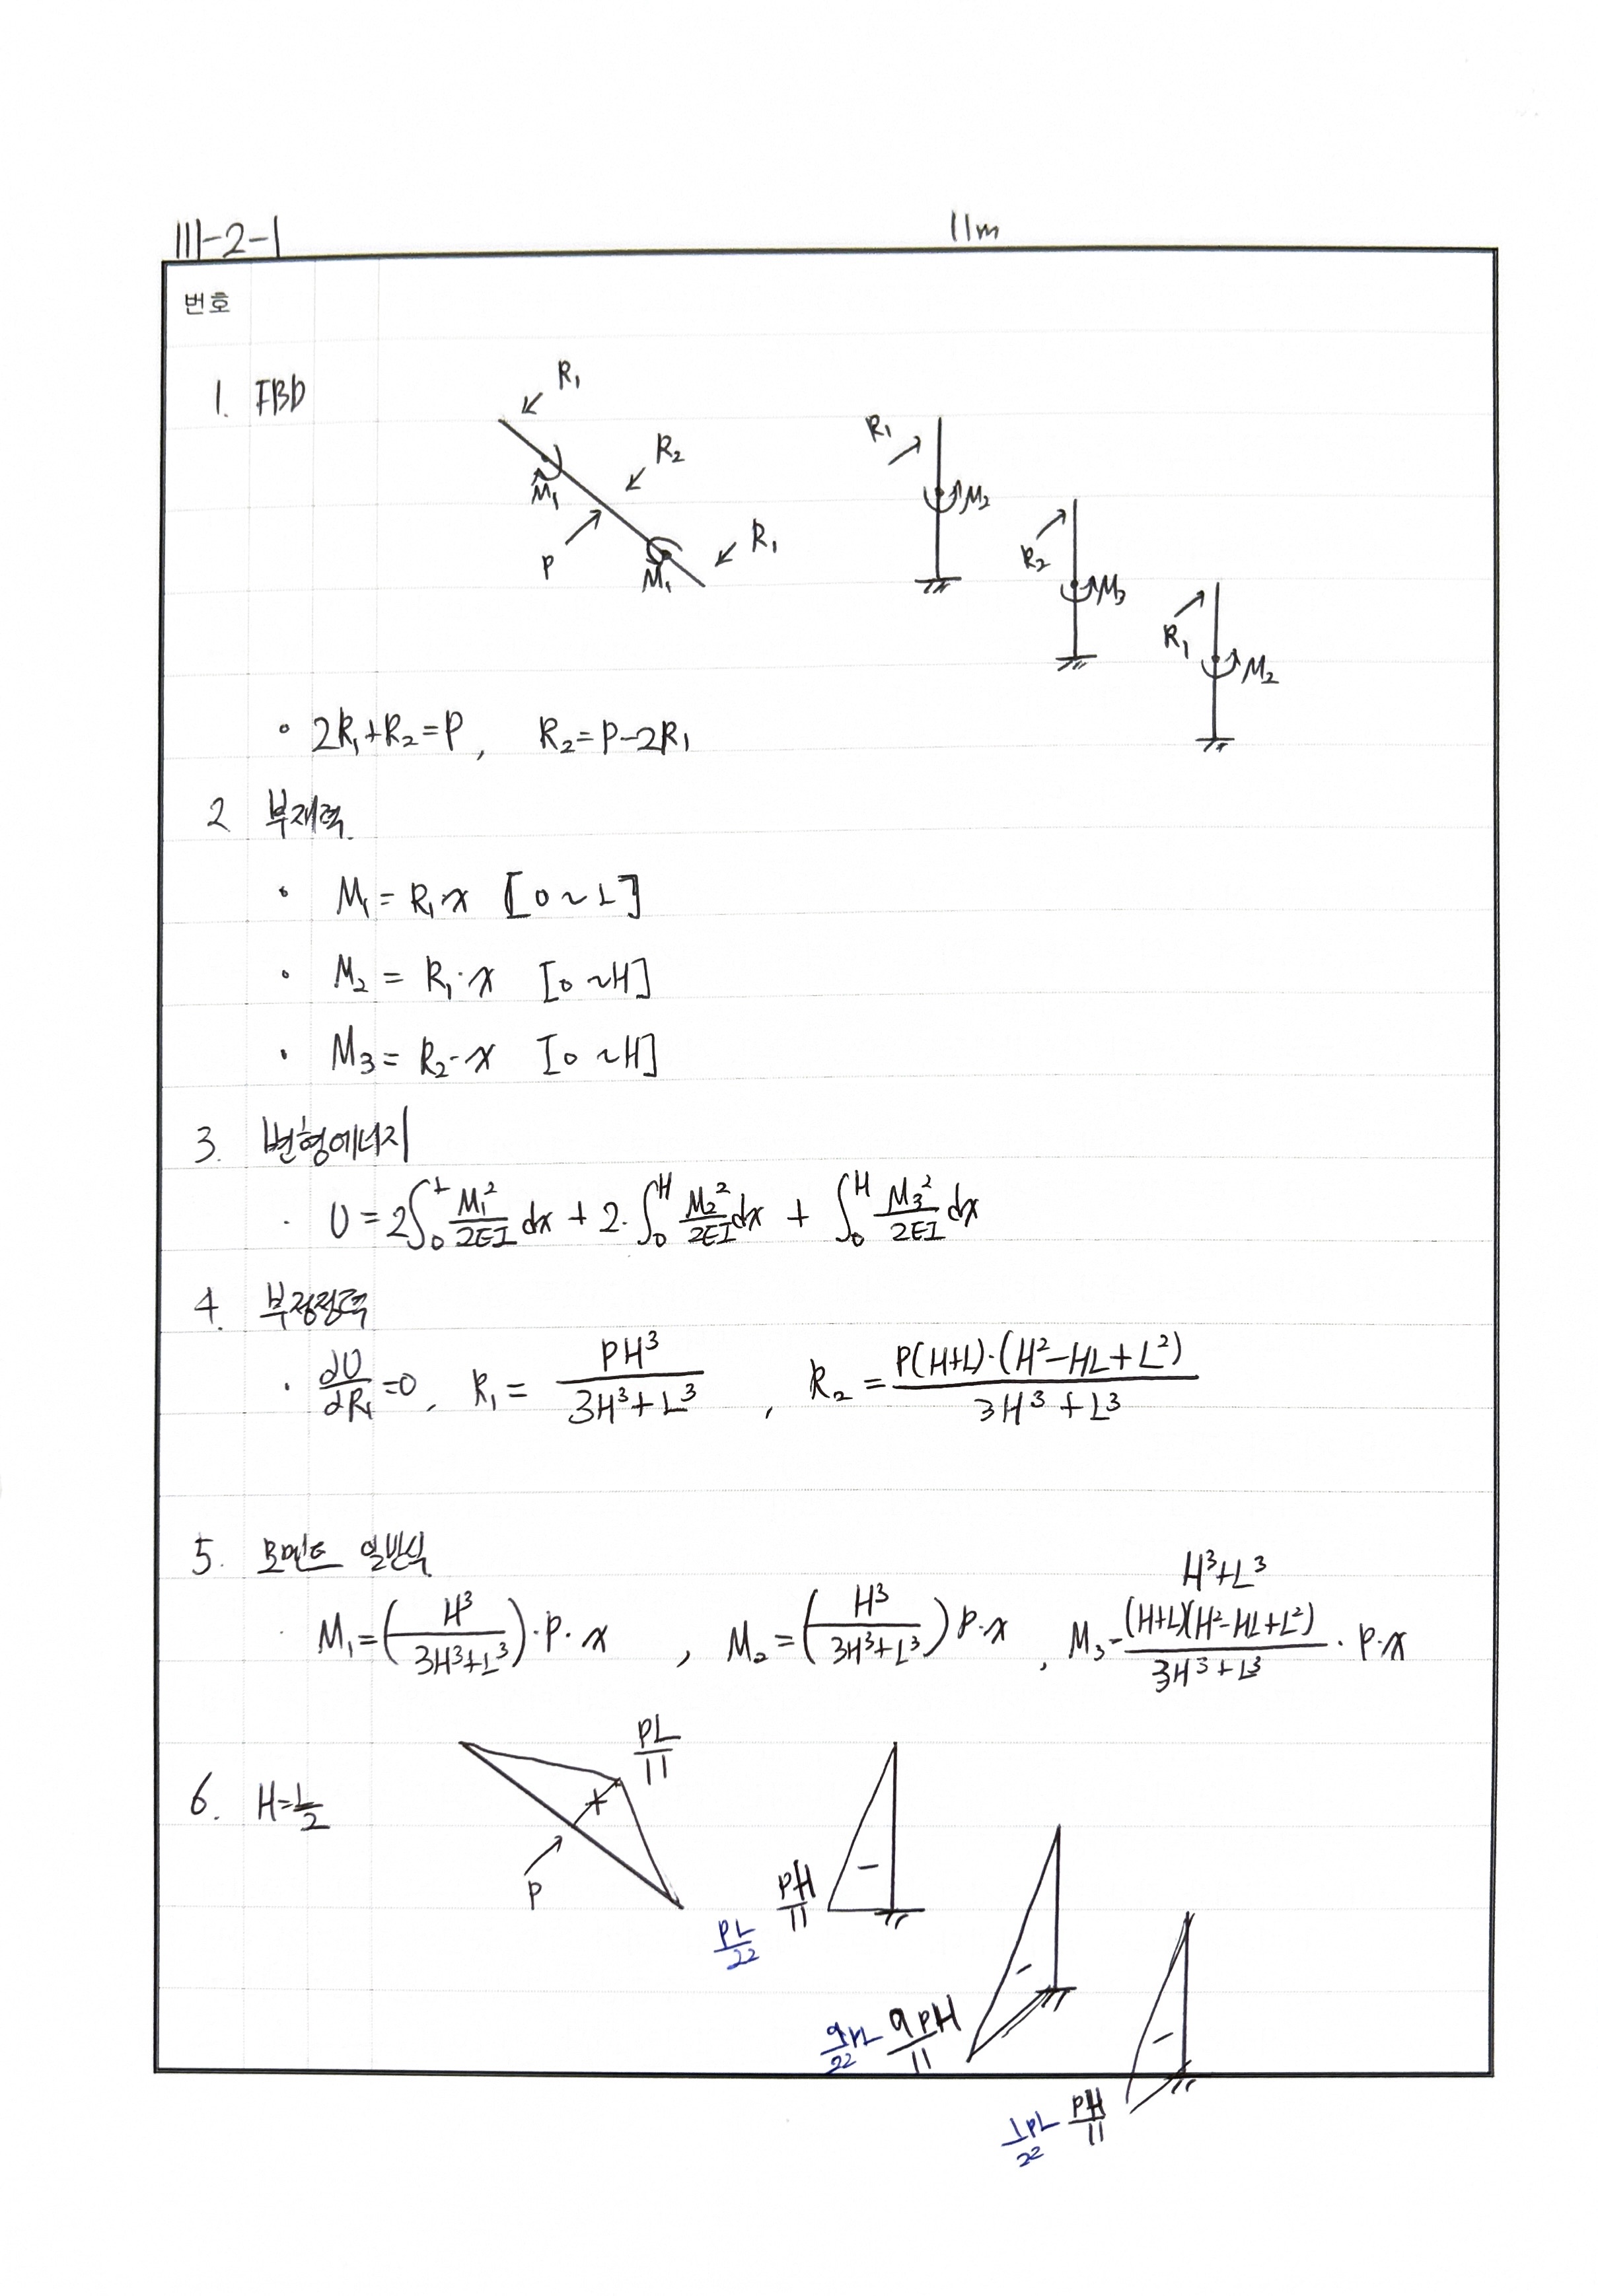 111-2-1
11m
번호
1. FBD
R₁
R₂
M₁
P
R₁
M₁
R₁
M₂
R₂
M₃
R₁
M₂
∘ 2R₁+R₂=P, R₂=P-2R₁
2 부재력
• M₁= R₁·x [0~L]
∘ M₂ = R₁·x [0~H]
• M₃= R₂·x [0~H]
3. 변형에너지
· U = 2∫₀ᴸ M₁²/2EI dx + 2·∫₀ᴴ M₂²/2EI dx + ∫₀ᴴ M₃²/2EI dx
4. 부정정력
· ∂U/∂R₁=0, R₁= PH³/3H³+L³ , R₂ = P(H+L)·(H²-HL+L²)/3H³+L³
5. 모멘트 일반식
H³+L³
· M₁=(H³/3H³+L³)·P·x , M₂=(H³/3H³+L³)P·x , M₃=(H+L)(H²-HL+L²)/3H³+L³ · P·x
6. H=L/2
PL/11
+
P
PL/22 PH/11
-
9PL/22 9PH/11
-
1PL/22 PH/11
-